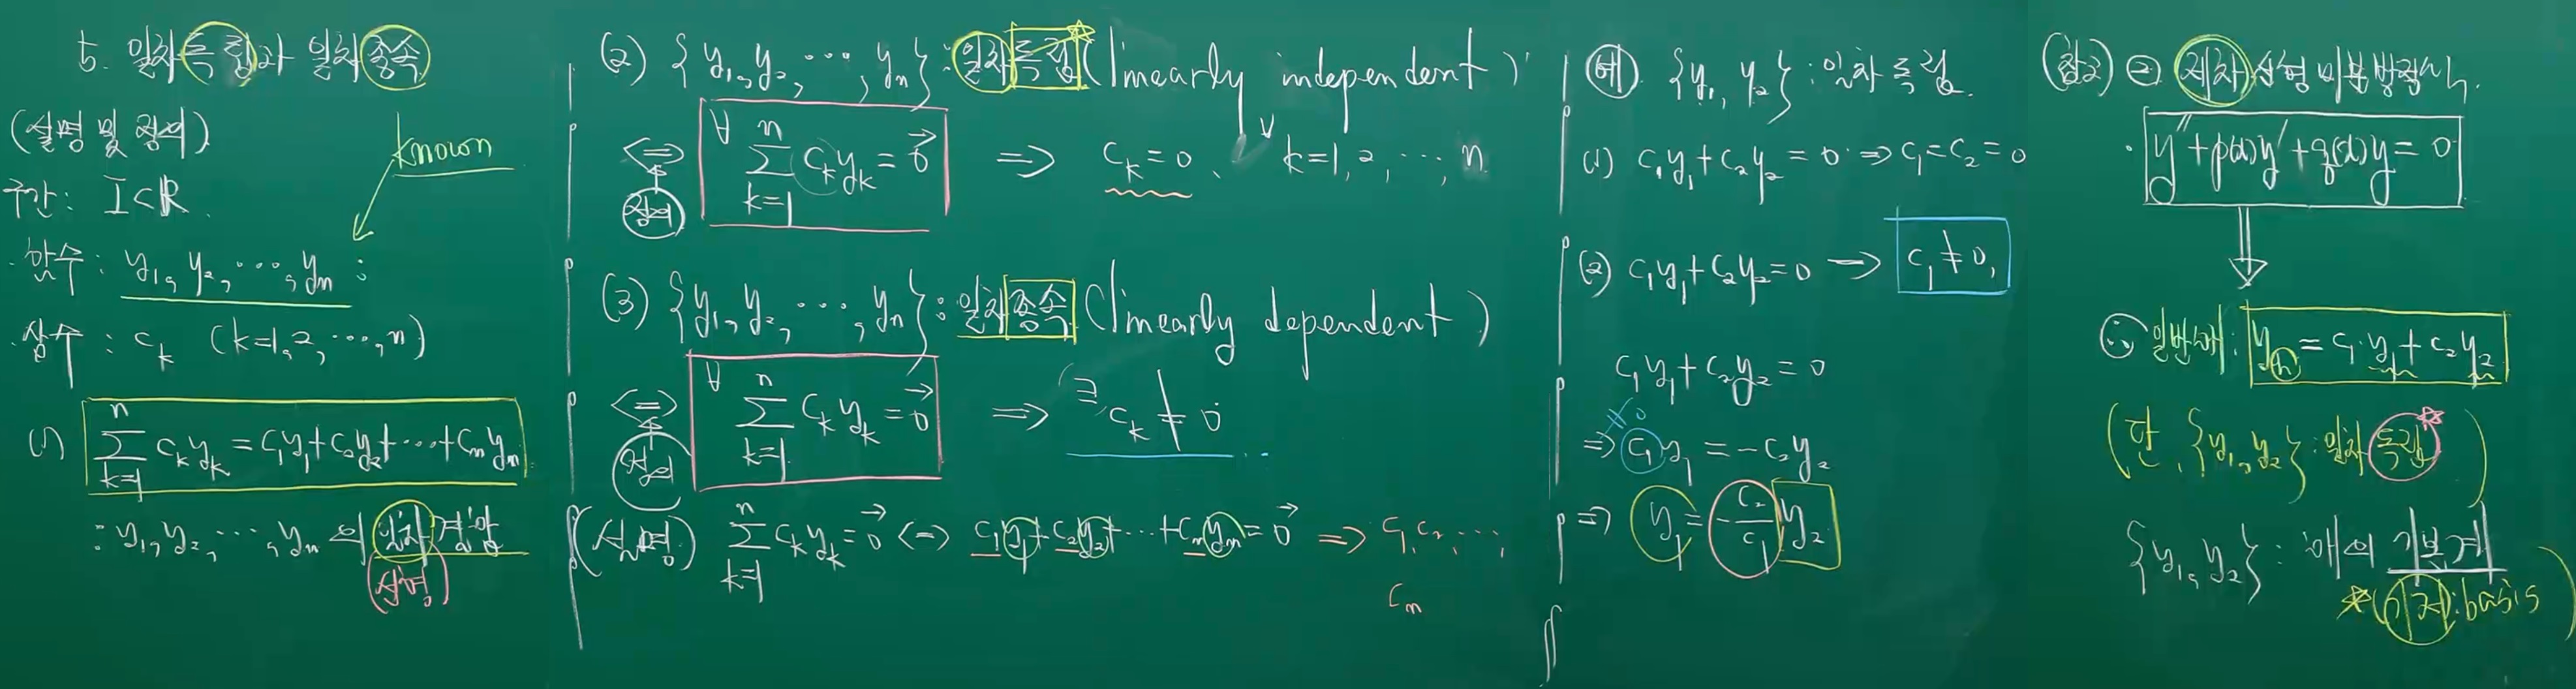 5. 일차독립과 일차종속
(설명 및 정의)
known
구간: I⊂ℝ.
· 함수: y₁, y₂, ⋯, yₙ :
· 상수: cₖ (k=1, 2, ⋯, n)
(1) ∑ₖ₌₁ⁿ cₖyₖ = c₁y₁+c₂y₂+⋯+cₙyₙ
: y₁, y₂, ⋯, yₙ 의 일차결합
(선형)
(2) {y₁, y₂, ⋯, yₙ} : 일차독립 (linearly independent)
⇔ ∀ ∑ₖ₌₁ⁿ cₖyₖ = 0⃗ ⇒ cₖ=0, ∀ k=1, 2, ⋯, n
정의
(3) {y₁, y₂, ⋯, yₙ} : 일차종속 (linearly dependent)
⇔ ∀ ∑ₖ₌₁ⁿ cₖyₖ = 0⃗ ⇒ ∃ cₖ ≠ 0
정의
(설명) ∑ₖ₌₁ⁿ cₖyₖ = 0⃗ ⇔ c₁y₁+c₂y₂+⋯+cₙyₙ = 0⃗ ⇒ c₁, c₂, ⋯,
cₙ
예) {y₁, y₂} : 일차독립.
(1) c₁y₁+c₂y₂ = 0 ⇒ c₁=c₂=0
(2) c₁y₁+c₂y₂=0 → c₁≠0,
c₁y₁+c₂y₂ = 0
≠0
⇒ c₁y₁ = -c₂y₂
⇒ y₁ = -c₂/c₁ y₂
(참고) 제차 선형 미분방정식.
· y″+p(x)y′+q(x)y = 0
⇓
∴ 일반해: yₕ = c₁y₁+c₂y₂
(단, {y₁, y₂} : 일차독립)
{y₁, y₂} : 해의 기본계
*(기저: basis)